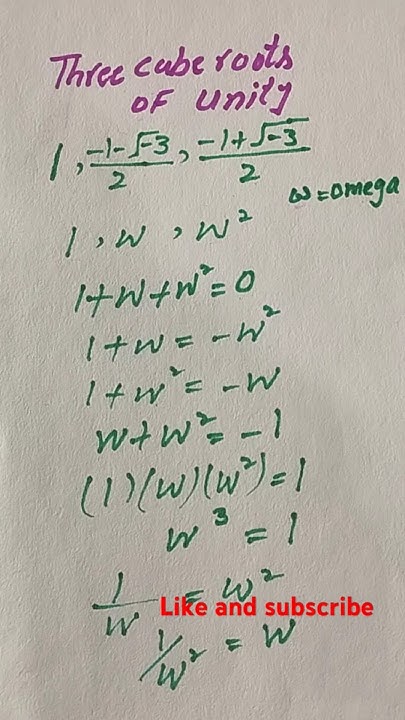 Three cube roots
of unity
1, (-1-√-3)/2, (-1+√-3)/2
ω = omega
1, w, w²
1+w+w² = 0
1+w = -w²
1+w² = -w
w+w² = -1
(1)(w)(w²) = 1
w³ = 1
1/w = w²
Like and subscribe
1/w² = w